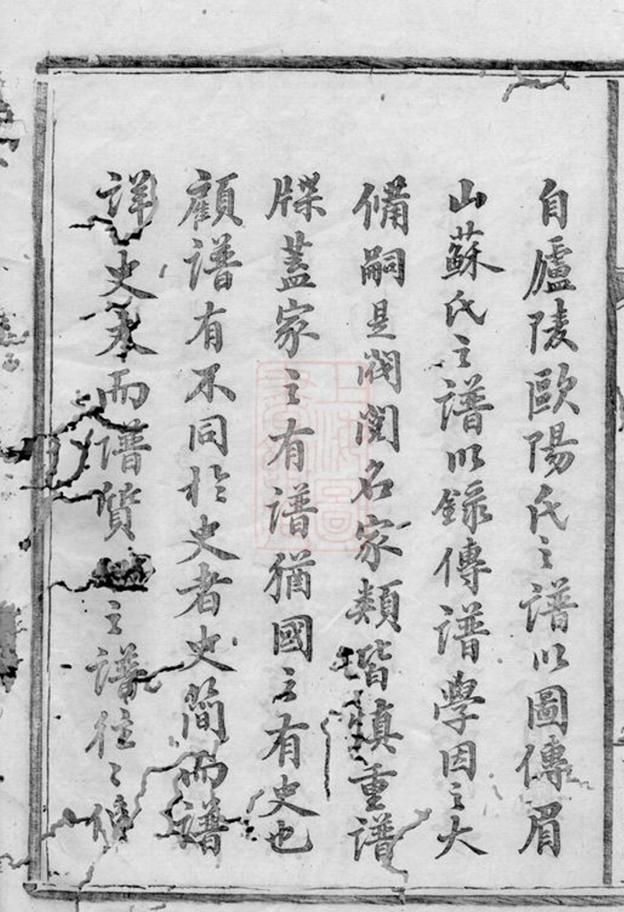 自廬陵歐陽氏之譜以圖傳眉
山蘇氏之譜以錄傳譜學因之大
備嗣是閥閱名家類皆慎重譜
牒蓋家之有譜猶國之有史也
顧譜有不同於史者史簡而譜
詳史文而譜質之譜往々